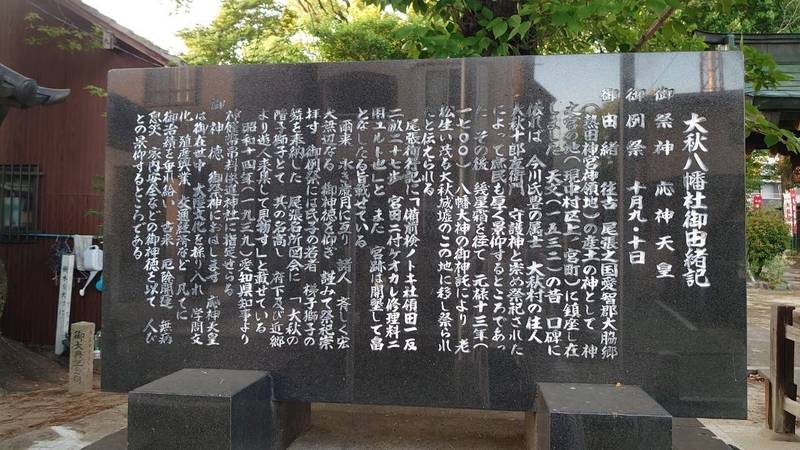 大秋八幡社御由緒記
御祭神 応神天皇
御例祭 十月九・十日
御由緒 往古 尾張之国愛智郡大脇郷
(熱田神宮神領地)の産土の神として 神
之宮の地(現中村区上ノ宮町)に鎮座し在
しました 天文(一五三二)の昔 口碑に
依れば 今川氏豊の属士 大秋村の住人
大秋十郎左衛門 守護神と崇め祭祀された
によって庶民も厚く景仰するところであっ
た その後 幾星霜を径て 元禄十三年(
一七〇〇) 八幡大神の御神託により 老
松生い茂る大秋城墟のこの地に移し祭られ
たと伝えられる
尾張徇行記に「備前検ノトキ社領田一反
二畝二十七歩 宮田ニ付ケオカレ修理料ニ
用エル也」と また 宮跡は開墾して畠
となしたる旨載せている
爾来 永き歳月に亙り 諸人 斉しく宏
大無辺なる 御神徳を仰ぎ 謹みて祭祀崇
拝す 御例祭には氏子の若者 梯子獅子の
舞を奉納す 尾張名所図会に 「大秋の
階子獅子とて 其の名高し 府下及び近郷
より遊人来集して見物す」と載せている
昭和十四年(一九三九)愛知県知事より
神饌幣帛料供進神社に指定せらる
御神徳 御祭神におはします 応神天皇
は御在世中 大陸文化を採り入れ 学問文
化 殖産興業 交通経済など 凡てに
御治績を垂れ給い 古来 厄除開運 無病
息災 家内安全などの御神徳を以て 人び
との景仰するところである
御大典記念